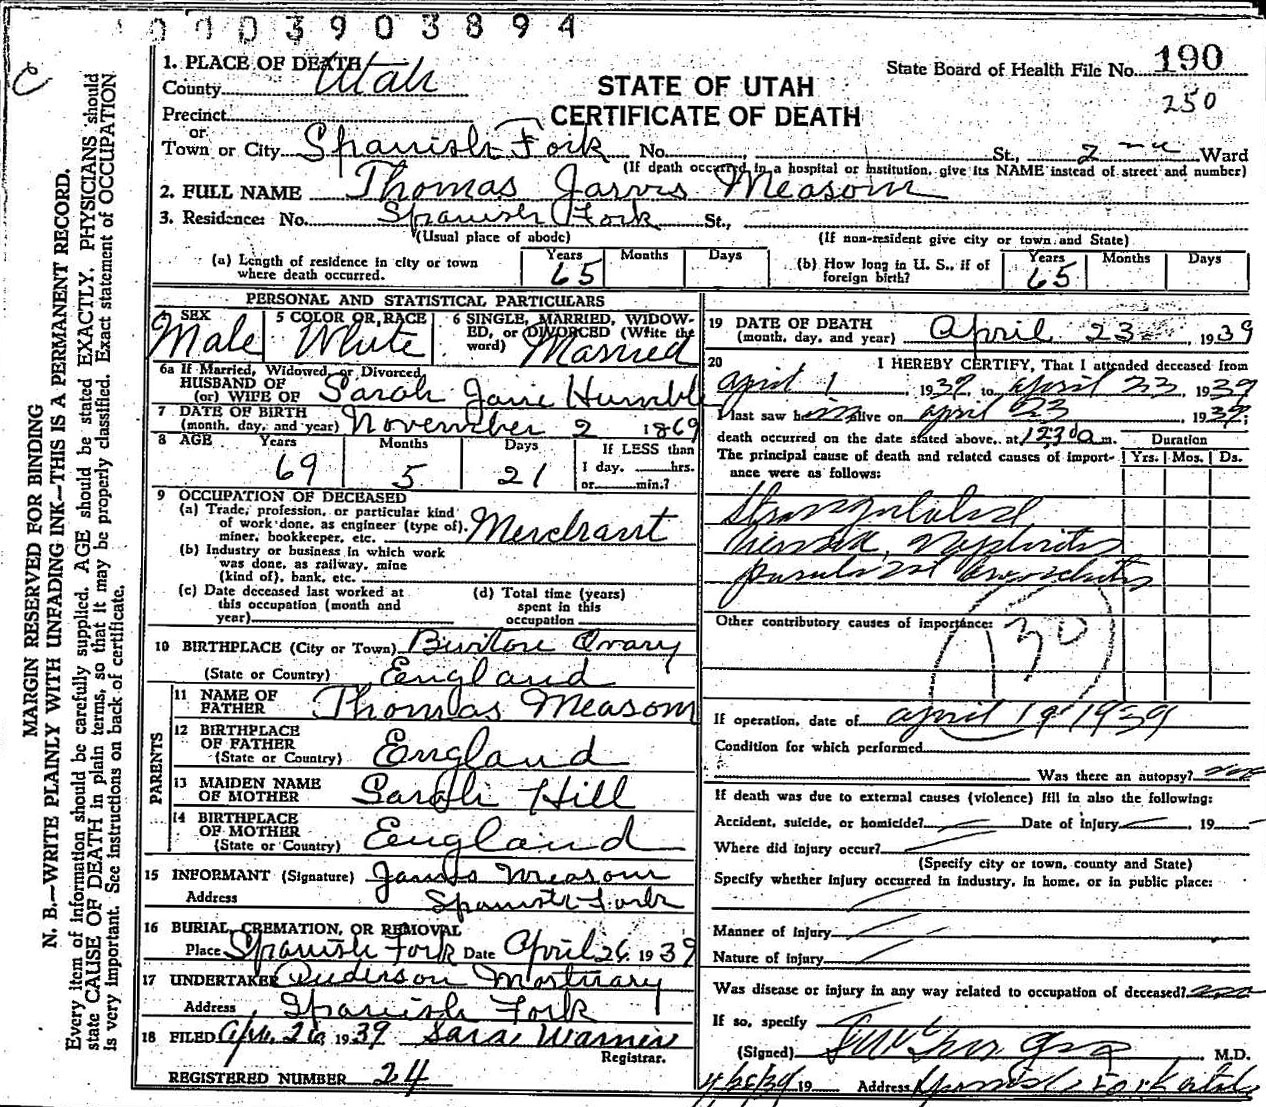 0003903894
C
MARGIN RESERVED FOR BINDING
N. B.—WRITE PLAINLY WITH UNFADING INK—THIS IS A PERMANENT RECORD.
Every item of information should be carefully supplied. AGE should be stated EXACTLY. PHYSICIANS should
state CAUSE OF DEATH in plain terms, so that it may be properly classified. Exact statement of OCCUPATION
is very important. See instructions on back of certificate.
STATE OF UTAH
CERTIFICATE OF DEATH
State Board of Health File No. 190
250
1. PLACE OF DEATH
County Utah
Precinct
or
Town or City Spanish Fork No. St., 2 Ward
(If death occurred in a hospital or institution, give its NAME instead of street and number)
2. FULL NAME Thomas Jarvis Measom
3. Residence: No. Spanish Fork St.,
(Usual place of abode) (If non-resident give city or town and State)
(a) Length of residence in city or town where death occurred. Years 65 Months Days
(b) How long in U. S., if of foreign birth? Years 65 Months Days
PERSONAL AND STATISTICAL PARTICULARS
4 SEX Male
5 COLOR OR RACE White
6 SINGLE, MARRIED, WIDOWED, or DIVORCED (Write the word) Married
6a If Married, Widowed, or Divorced
HUSBAND OF
(or) WIFE OF Sarah Jane Humble
7 DATE OF BIRTH
(month, day, and year) November 2 1869
8 AGE Years 69 Months 5 Days 21 If LESS than 1 day, hrs. or min.?
9 OCCUPATION OF DECEASED
(a) Trade, profession, or particular kind
of work done, as engineer (type of),
miner, bookkeeper, etc. Merchant
(b) Industry or business in which work
was done, as railway, mine
(kind of), bank, etc.
(c) Date deceased last worked at
this occupation (month and
year)
(d) Total time (years)
spent in this
occupation
10 BIRTHPLACE (City or Town) Burton Overy
(State or Country) England
PARENTS
11 NAME OF
FATHER Thomas Measom
12 BIRTHPLACE
OF FATHER
(State or Country) England
13 MAIDEN NAME
OF MOTHER Sarah Hill
14 BIRTHPLACE
OF MOTHER
(State or Country) England
15 INFORMANT (Signature) James Measom
Address Spanish Fork
16 BURIAL, CREMATION, OR REMOVAL
Place Spanish Fork Date April 26, 1939
17 UNDERTAKER Anderson Mortuary
Address Spanish Fork
18 FILED Apr. 26, 1939 Sara Warner
Registrar.
REGISTERED NUMBER 24
19 DATE OF DEATH
(month, day, and year) April 23, 1939
20 I HEREBY CERTIFY, That I attended deceased from
April 1, 1939, to April 23, 1939
I last saw him alive on April 23, 1939;
death occurred on the date stated above, at 1230a m.
The principal cause of death and related causes of importance were as follows:
Duration
Yrs. Mos. Ds.
Strangulated
hernia, Nephritis
purulent bronchitis
Other contributory causes of importance:
130
If operation, date of April 19 1939
Condition for which performed
Was there an autopsy? no
If death was due to external causes (violence) fill in also the following:
Accident, suicide, or homicide? — Date of injury — , 19 —
Where did injury occur? —
(Specify city or town, county and State)
Specify whether injury occurred in industry, in home, or in public place:
Manner of injury —
Nature of injury —
Was disease or injury in any way related to occupation of deceased? no
If so, specify
(Signed) M.D.
4/26/39 19 Address Spanish Fork Utah